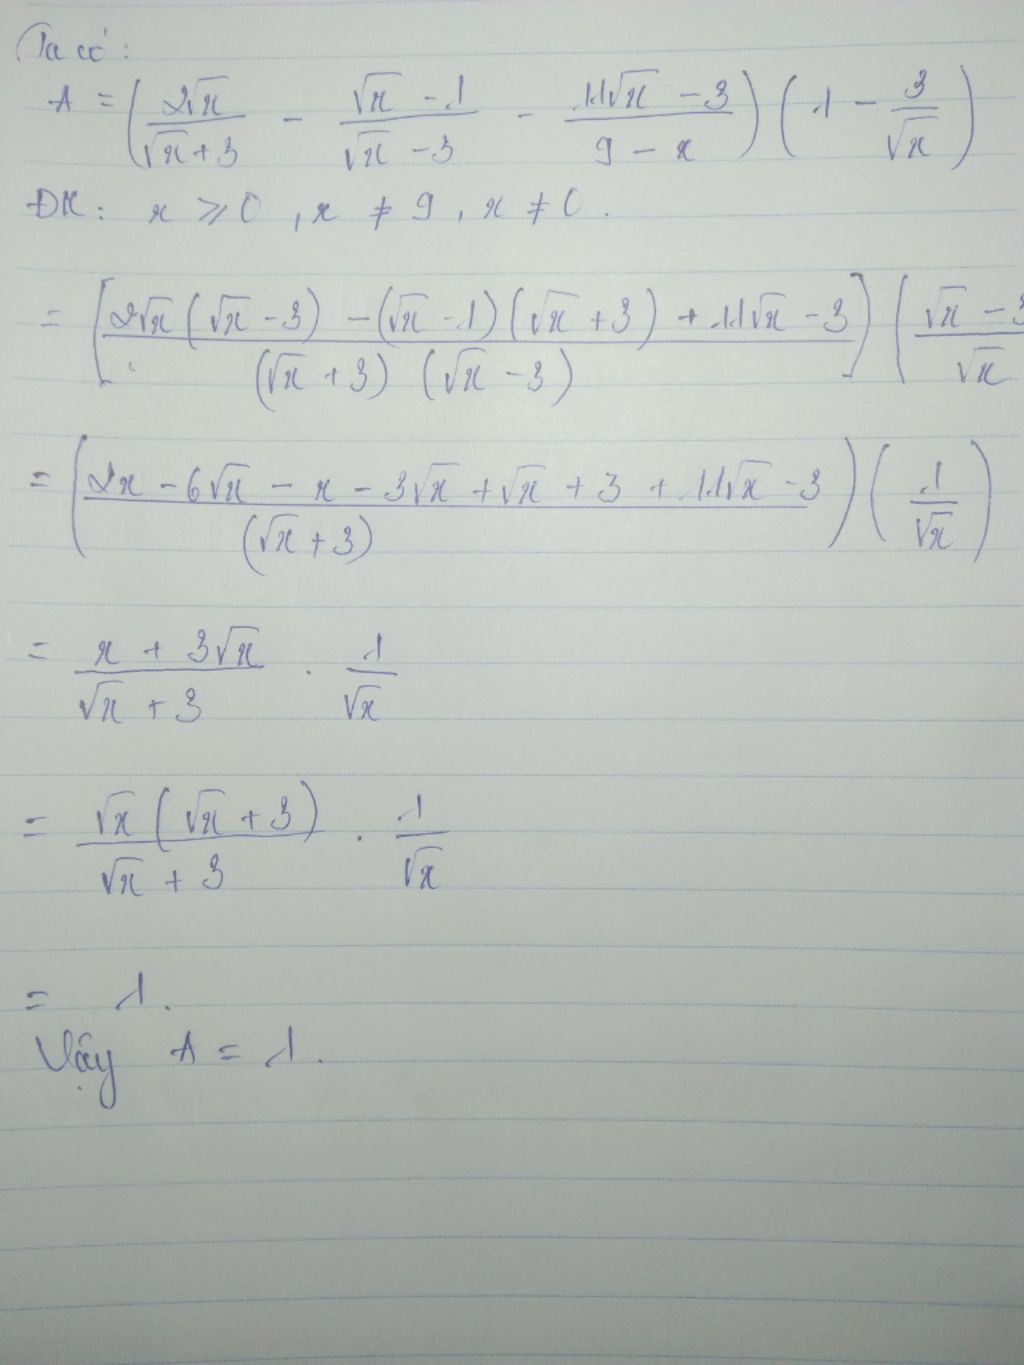 Ta có:
A = (2√x / √x + 3 − √x − 1 / √x − 3 − 11√x − 3 / 9 − x) (1 − 3 / √x)
ĐK: x ⩾ 0, x ≠ 9, x ≠ 0.
= [2√x (√x − 3) − (√x − 1) (√x + 3) + 11√x − 3 / (√x + 3) (√x − 3)] (√x − 3 / √x
= (2x − 6√x − x − 3√x + √x + 3 + 11√x − 3 / (√x + 3)) (1 / √x)
= x + 3√x / √x + 3 . 1 / √x
= √x (√x + 3) / √x + 3 . 1 / √x
= 1.
Vậy A = 1.